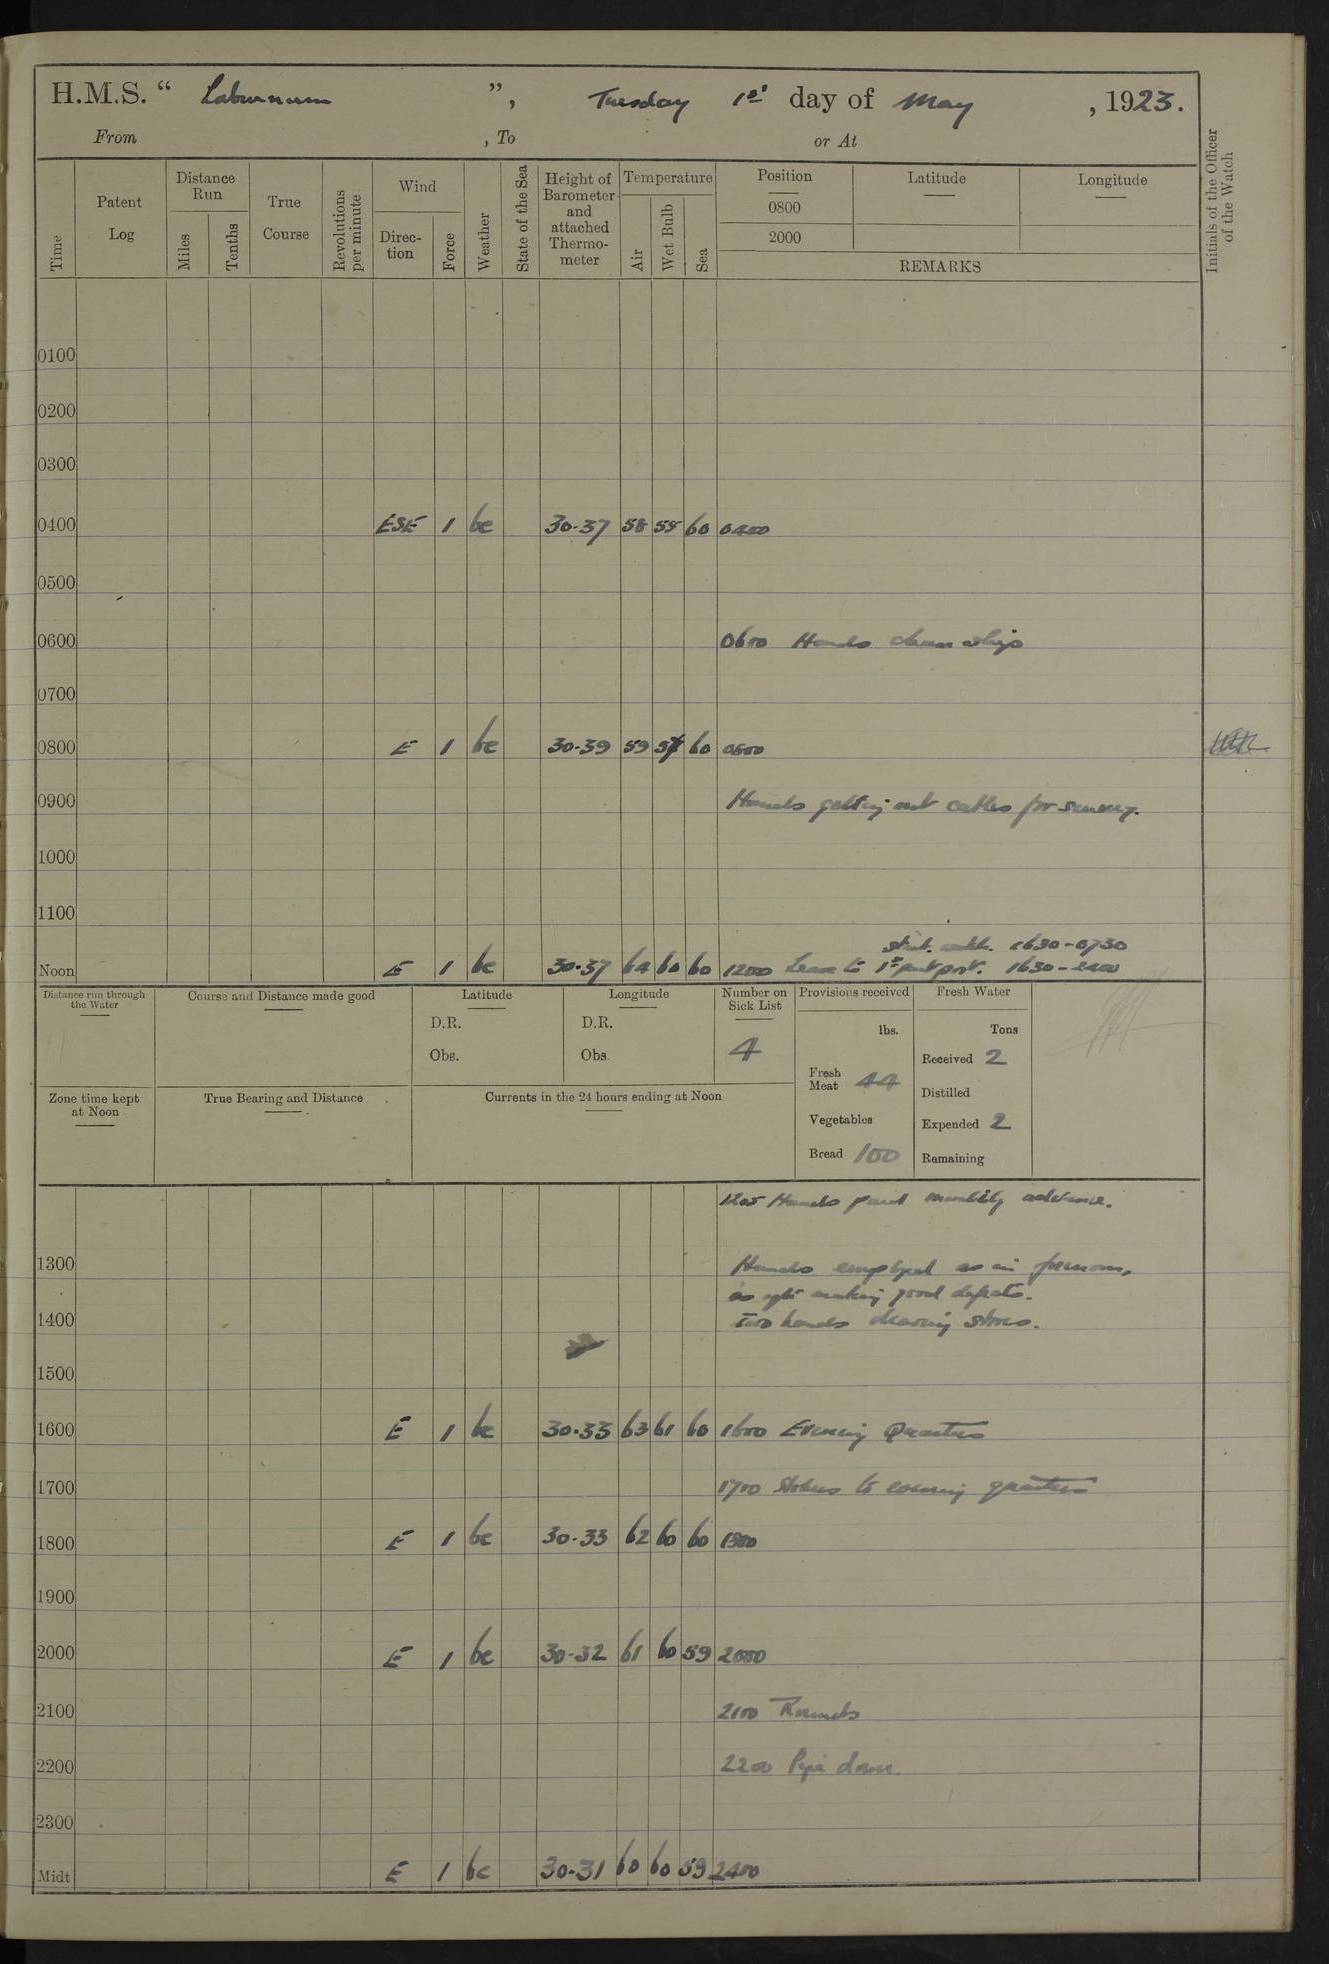 H.M.S. “ Laburnum ”, Tuesday 1st day of May, 1923.
From , To or At
Time
Patent Log
Distance Run
Miles
Tenths
True Course
Revolutions per minute
Wind
Direc-tion
Force
Weather
State of the Sea
Height of Barometer and attached Thermo-meter
Temperature
Air
Wet Bulb
Sea
Position
0800
2000
Latitude
Longitude
REMARKS
Initials of the Officer of the Watch
0100
0200
0300
0400 ESE 1 bc 30.37 58 55 60 0400
0500
0600 0600 Hands clean ship
0700
0800 E 1 bc 30.39 59 57 60 0800
0900 Hands getting out cables for survey.
1000
1100
Starb. watch. 1630-0730
Noon E 1 bc 30.37 64 60 60 1200 Leave to 1st part port. 1630-2400
Distance run through the Water
Course and Distance made good
Latitude
D.R.
Obs.
Longitude
D.R.
Obs
Number on Sick List
4
Provisions received
lbs.
Fresh Meat 44
Vegetables
Bread 100
Fresh Water
Tons
Received 2
Distilled
Expended 2
Remaining
Zone time kept at Noon
True Bearing and Distance
Currents in the 24 hours ending at Noon
1205 Hands paid monthly advance.
1300 Hands employed as in forenoon,
making good defects.
1400 two hands drawing stores.
1500
1600 E 1 bc 30.33 63 61 60 1600 Evening Quarters
1700 1700 Stokers to evening quarters
1800 E 1 bc 30.33 62 60 60 1800
1900
2000 E 1 bc 30.32 61 60 59 2000
2100 2100 Rounds
2200 2200 Pipe down
2300
Midt E 1 bc 30.31 60 60 59 2400